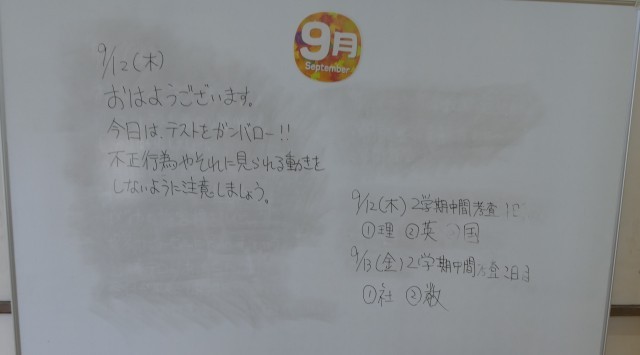 9月
September
9/12(木)
おはようございます。
今日は、テストをガンバロー!!
不正行為やそれに見られる動きを
しないように注意しましょう。
9/12(木) 2学期中間考査 1日
①理 ②英 ③国
9/13(金) 2学期中間考査 2日目
①社 ②数